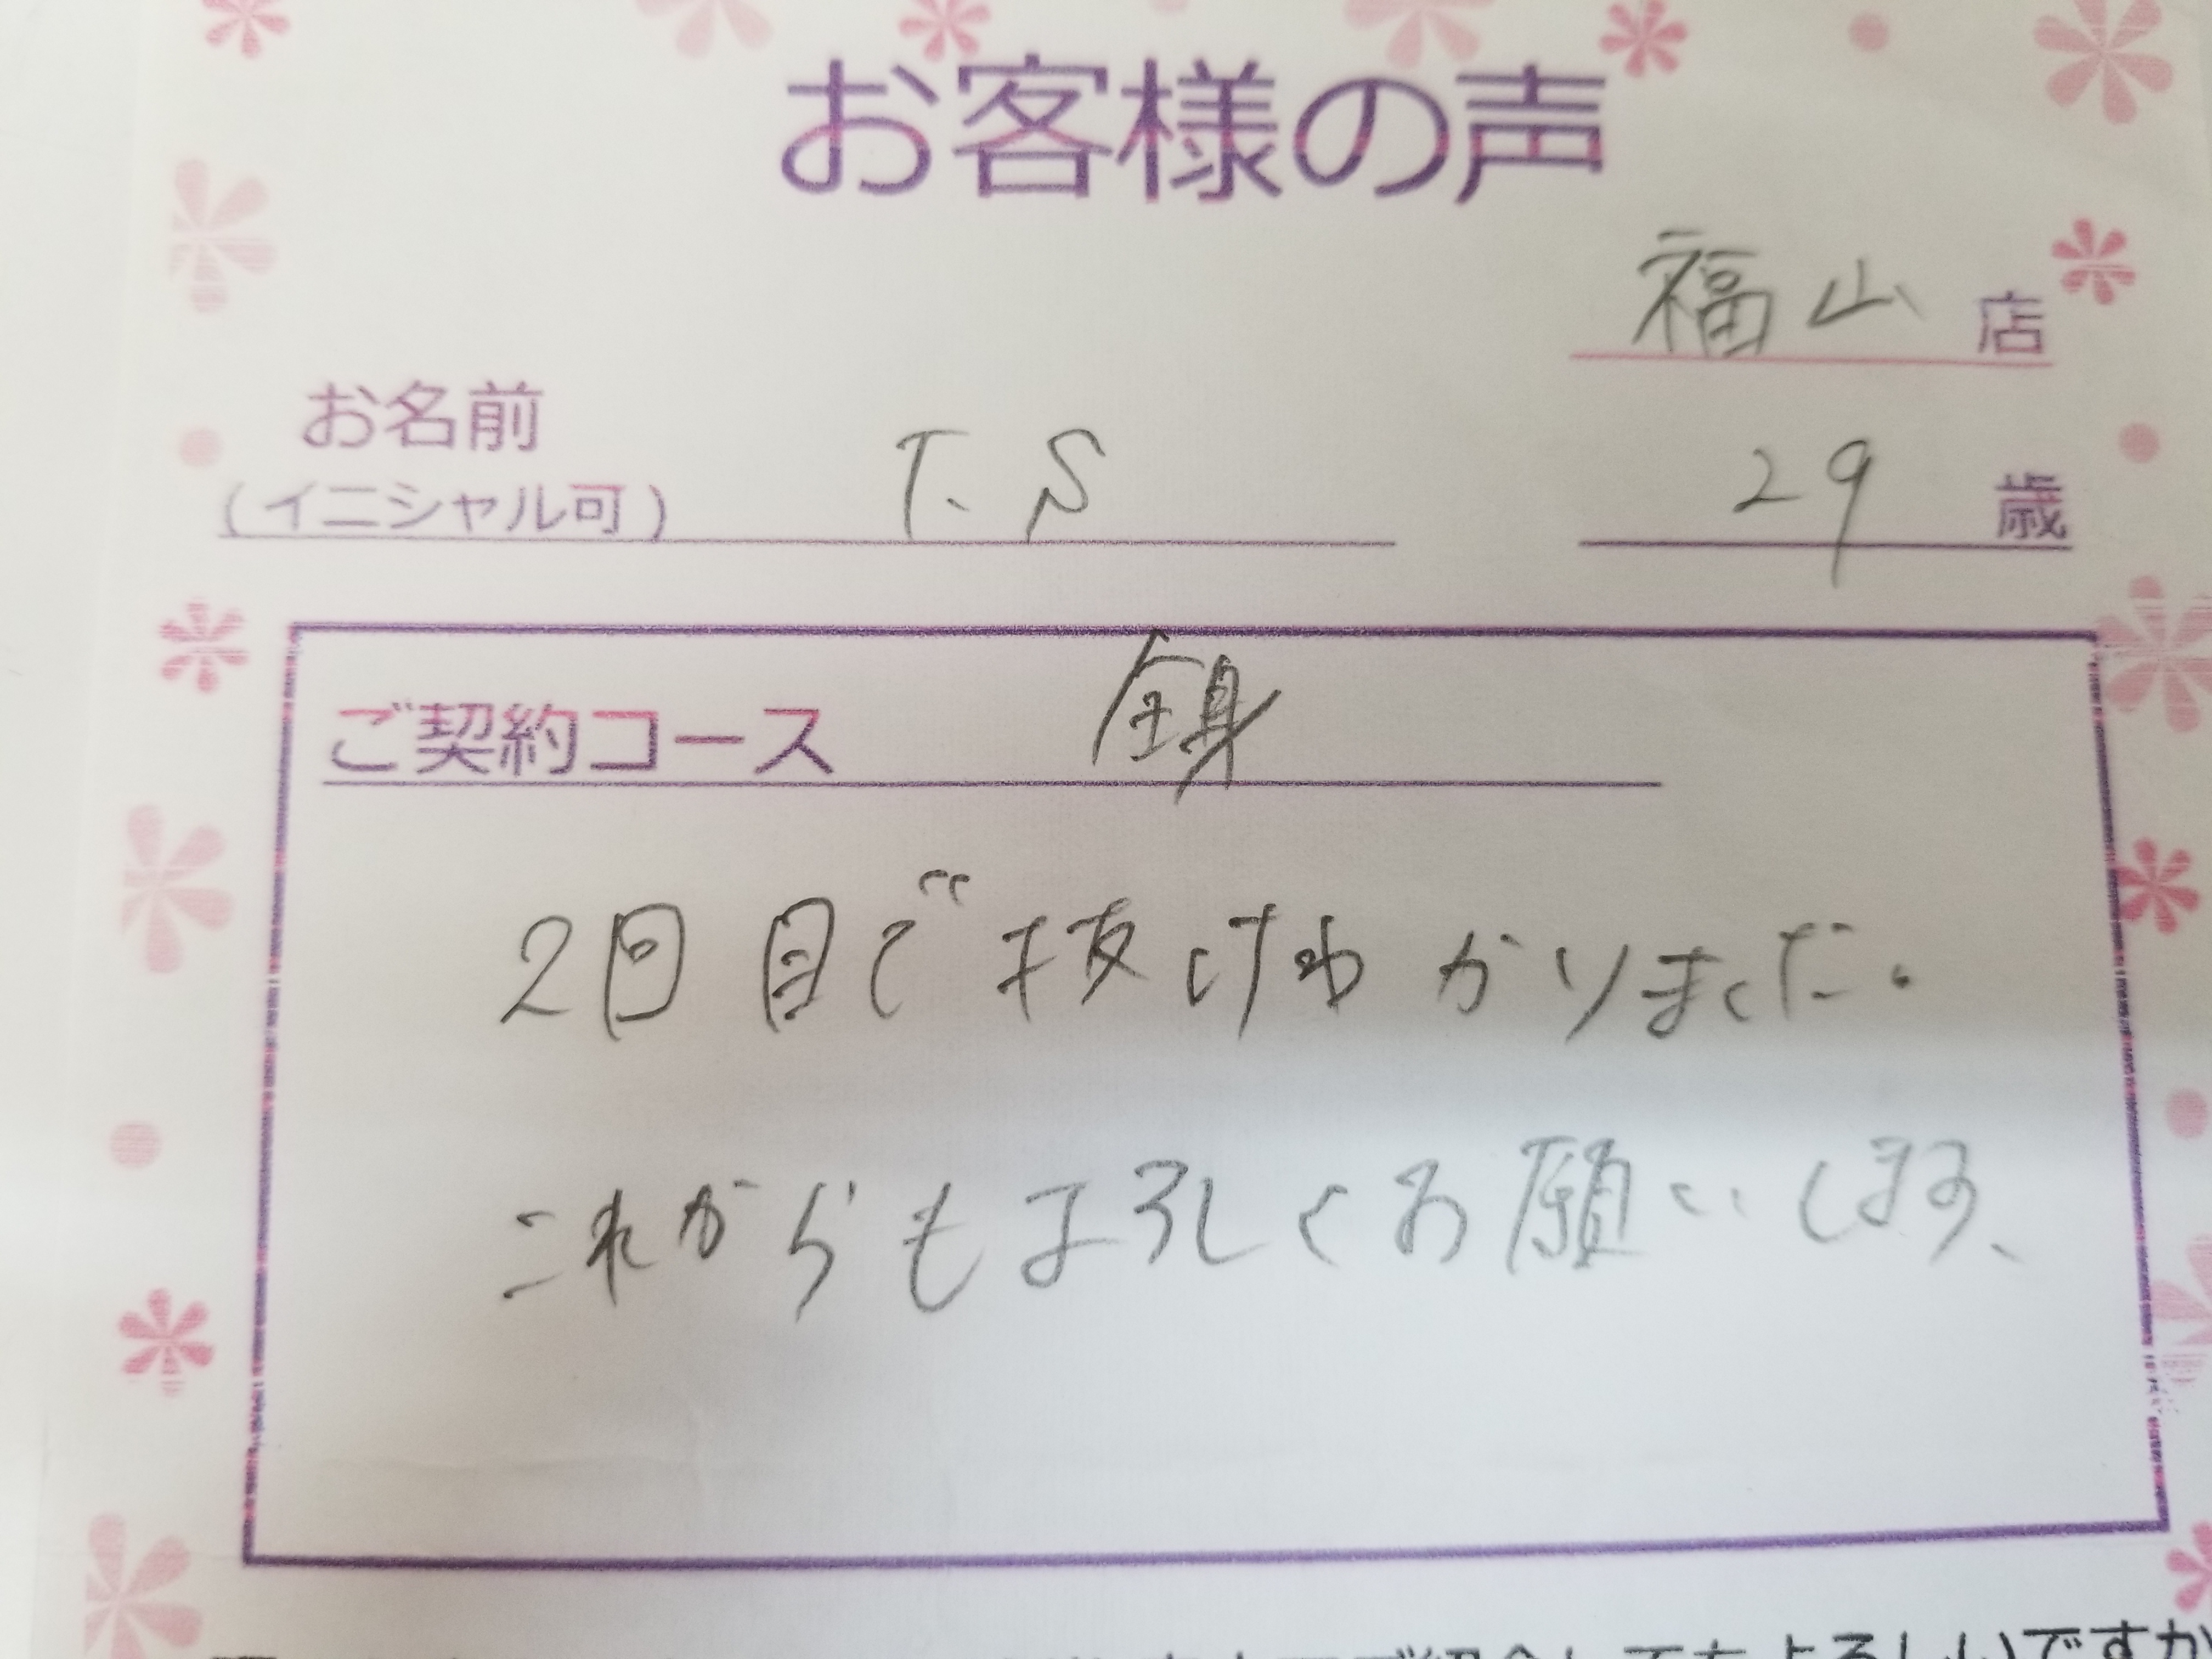 お客様の声
福山店
お名前
(イニシャル可) T.S 29歳
ご契約コース 全身
2回目で抜けわかりました。
これからもよろしくお願いします、
ご紹介してもよろしいですか